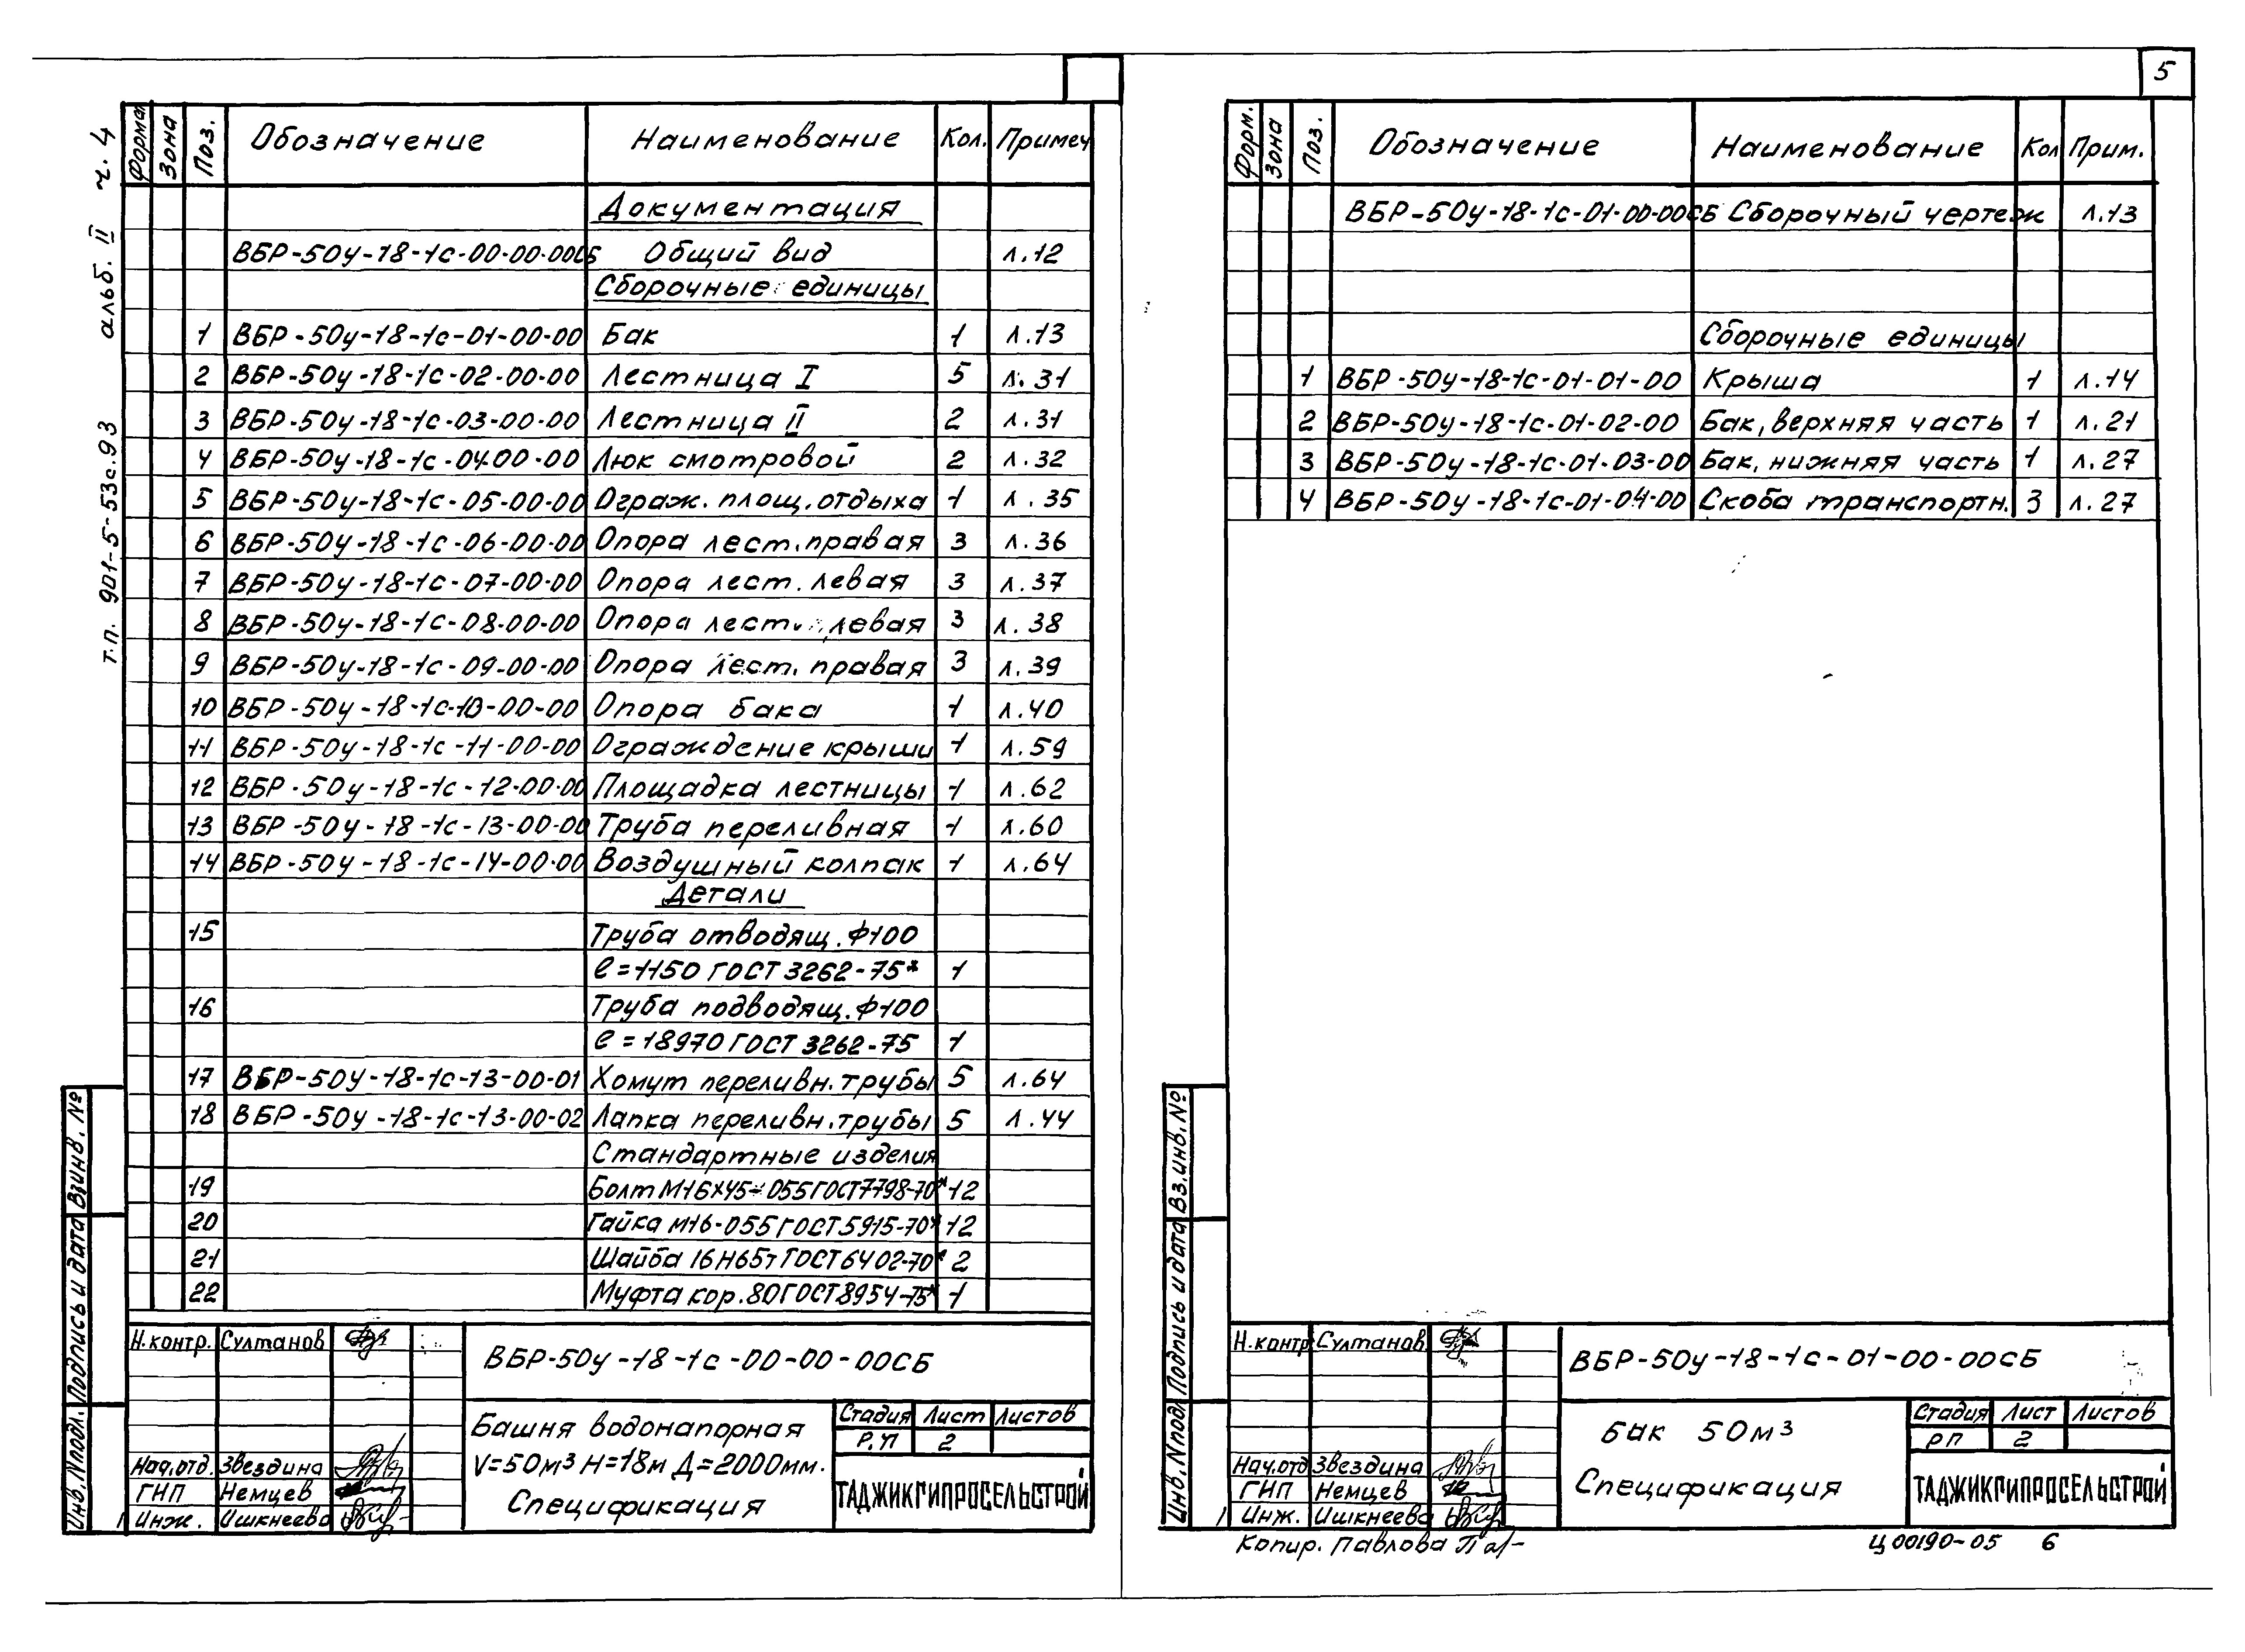 5
т.п. 901-5-53с.93 альб. II ч. 4
Форма Зона Поз. Обозначение Наименование Кол. Примеч
Документация
ВБР-50у-18-1с-00-00-00СБ Общий вид л.12
Сборочные единицы
1 ВБР-50у-18-1с-01-00-00 Бак 1 л.13
2 ВБР-50у-18-1с-02-00-00 Лестница I 5 л.31
3 ВБР-50у-18-1с-03-00-00 Лестница II 2 л.31
4 ВБР-50у-18-1с-04-00-00 Люк смотровой 2 л.32
5 ВБР-50у-18-1с-05-00-00 Ограж. площ. отдыха 1 л.35
6 ВБР-50у-18-1с-06-00-00 Опора лест. правая 3 л.36
7 ВБР-50у-18-1с-07-00-00 Опора лест. левая 3 л.37
8 ВБР-50у-18-1с-08-00-00 Опора лест. левая 3 л.38
9 ВБР-50у-18-1с-09-00-00 Опора лест. правая 3 л.39
10 ВБР-50у-18-1с-10-00-00 Опора бака 1 л.40
11 ВБР-50у-18-1с-11-00-00 Ограждение крыши 1 л.59
12 ВБР-50у-18-1с-12-00-00 Площадка лестницы 1 л.62
13 ВБР-50у-18-1с-13-00-00 Труба переливная 1 л.60
14 ВБР-50у-18-1с-14-00-00 Воздушный колпак 1 л.64
Детали
15 Труба отводящ. Ф100
ℓ=1150 ГОСТ 3262-75* 1
16 Труба подводящ. Ф100
ℓ=18970 ГОСТ 3262-75 1
17 ВБР-50у-18-1с-13-00-01 Хомут переливн. трубы 5 л.64
18 ВБР-50у-18-1с-13-00-02 Лапка переливн. трубы 5 л.44
Стандартные изделия
19 Болт М16х45-055 ГОСТ7798-70* 12
20 Гайка М16-055 ГОСТ5915-70* 12
21 Шайба 16Н65т ГОСТ6402-70* 2
22 Муфта кор. 80 ГОСТ8954-75* 1
Инв. N подл. Подпись и дата Вз инв. №
Н.контр. Султанов
ВБР-50у-18-1с-00-00-00СБ
Башня водонапорная
V=50м³ Н=18м Д=2000мм.
Спецификация
Стадия Лист Листов
Р.П 2
ТАДЖИКГИПРОСЕЛЬСТРОЙ
Нач.отд. Звездина
ГНП Немцев
Инж. Ишкнеева
Форм. Зона Поз. Обозначение Наименование Кол Прим.
ВБР-50у-18-1с-01-00-00СБ Сборочный чертеж л.13
Сборочные единицы
1 ВБР-50у-18-1с-01-01-00 Крыша 1 л.14
2 ВБР-50у-18-1с-01-02-00 Бак, верхняя часть 1 л.21
3 ВБР-50у-18-1с-01-03-00 Бак, нижняя часть 1 л.27
4 ВБР-50у-18-1с-01-04-00 Скоба транспортн. 3 л.27
Инв. N подл Подпись и дата Вз.инв. №
Н.контр Султанов
ВБР-50у-18-1с-01-00-00СБ
Бак 50м³
Спецификация
Стадия Лист Листов
РП 2
ТАДЖИКГИПРОСЕЛЬСТРОЙ
Нач.отд Звездина
ГНП Немцев
Инж. Ишкнеева
Копир. Павлова
Ц00190-05 6